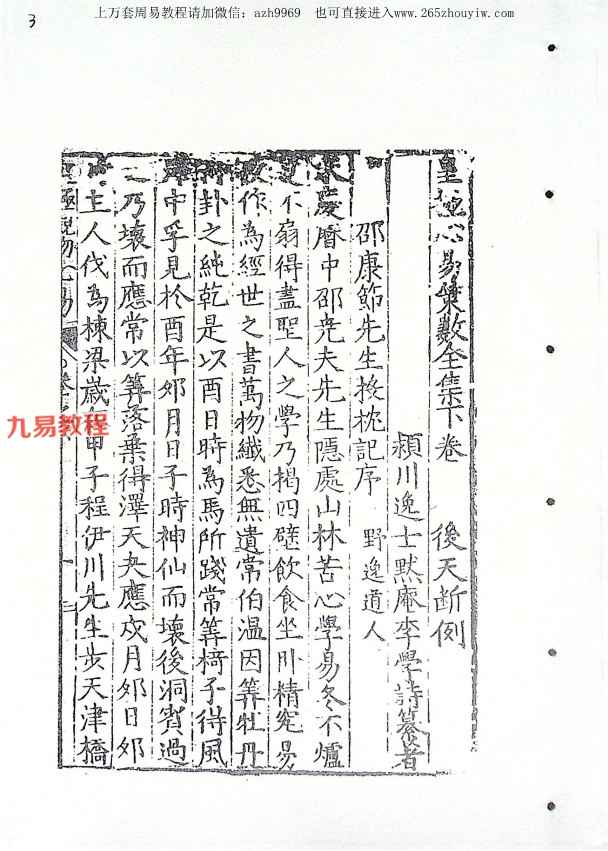 上万套周易教程请加微信：azh9969　也可直接进入www.265zhouyiw.com
3
皇極心易策數全集下卷　後天断例
穎川逸士黙庵李學詩纂著
邵康節先生投枕記序　野逸道人
慶曆中邵尭夫先生隱處山林苦心學易冬不爐
不扇得盡聖人之學乃揭四壁飲食坐卧精究易
作為經世之書萬物纖悉無遺常伯温因筭牡丹
卦之純乾是以酉日時為馬所踐常筭椅子得風
中孚見於酉年夘月日子時神仙而壞後洞賓過
乃壞而應常以筭落棄得澤天夬應戍月夘日夘
主人伐為棟梁歳甲子程伊川先生步天津橋
極観物
九易教程